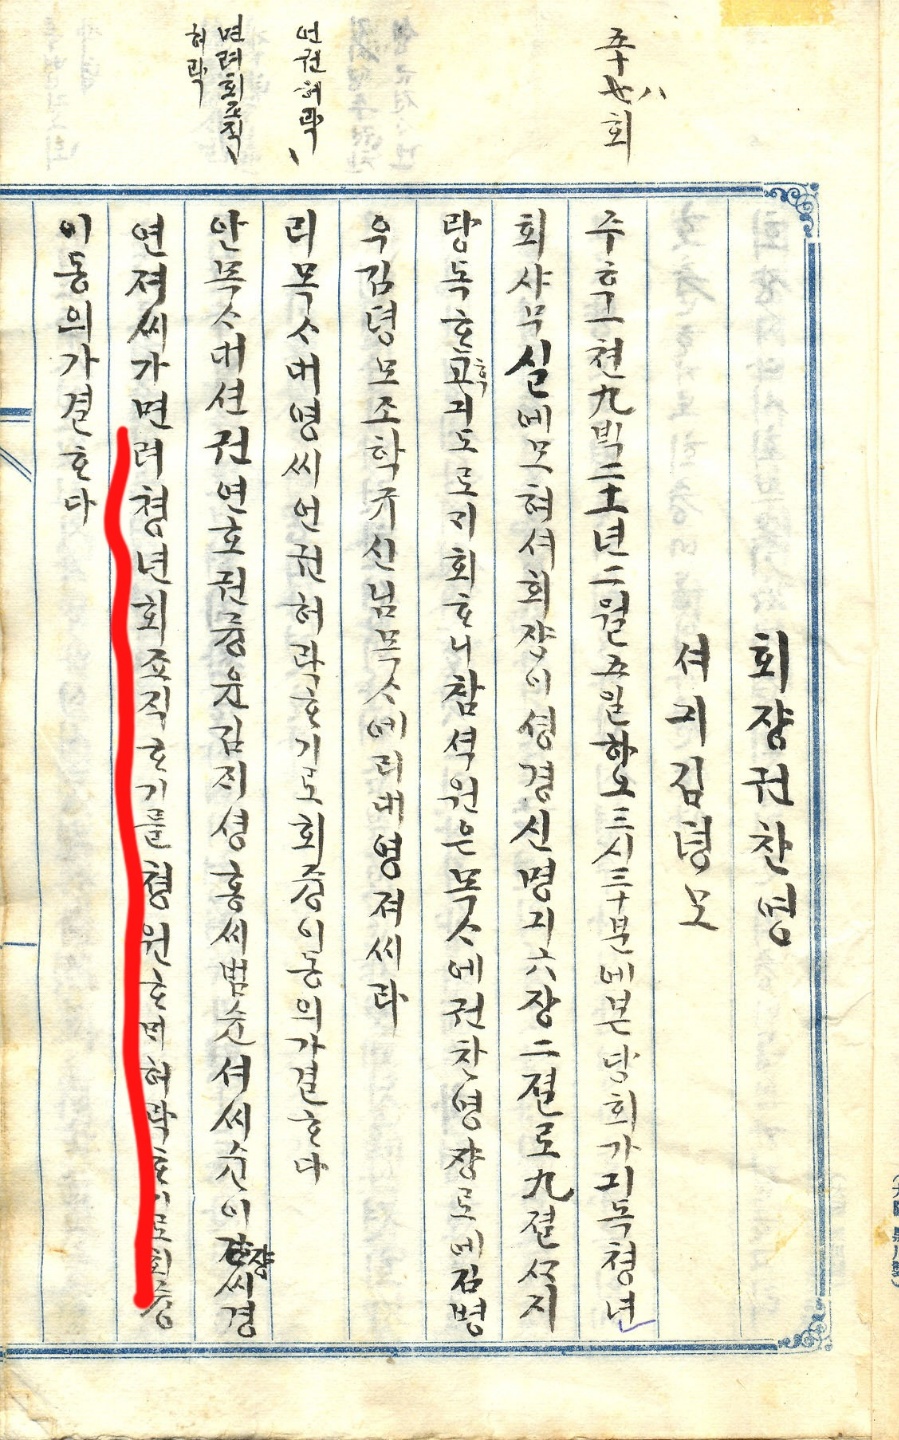 회쟝권찬영
셔긔김뎡모
五十七八회
주후一천九빅二十年二월五일하오三시三十분에본당회가긔독쳥년
회샤무실에모혀셔회쟝이셩경신명긔六장二졀로九졀ᄭᆞ지
랑독ᄒᆞ고후긔도로지회ᄒᆞ니참셕원은목ᄉᆞ에권찬영쟝로에김병
우김뎡모조학규신님목ᄉᆞ에리대영져씨라
언권허락
리목ᄉᆞ대영씨언권허락ᄒᆞ기로회즁이동의가결ᄒᆞ다
면려회조직
허락
안목ᄉᆞ대션권연호권즁윤김지셩홍씨범슌셔씨슌이쟝씨경
연져씨가면려쳥년회죠직ᄒᆞ기를쳥원ᄒᆞ매허락ᄒᆞ기로회즁
이동의가결ᄒᆞ다